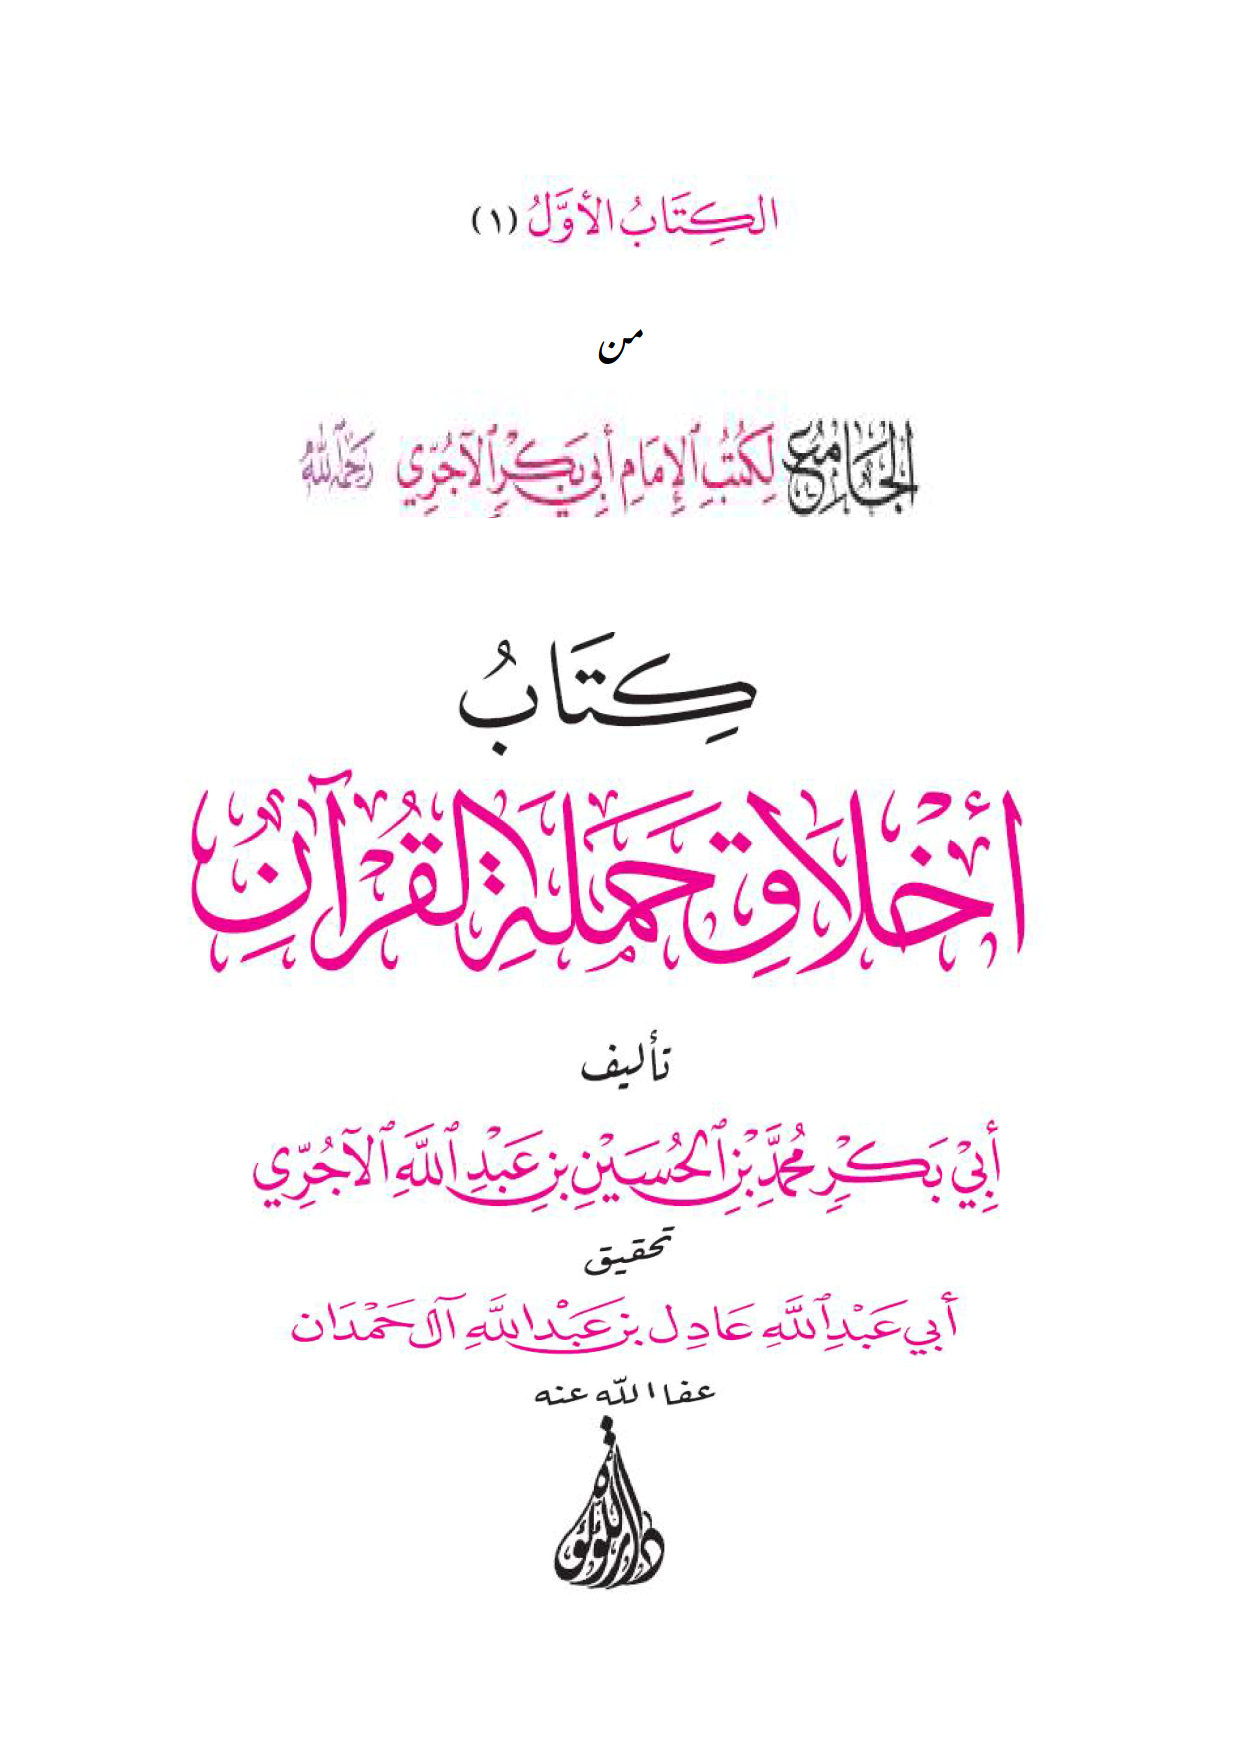 الكِتَابُ الأوَّلُ (١)
من
الجَامِعُ لِكُتُبِ الإِمَامِ أَبِي بَكْرٍ الآجُرِّي رَحِمَهُ اللهُ
كِتَابُ
أَخْلَاقِ حَمَلَةِ القُرْآنِ
تأليف
أَبِيْ بَكْرٍ مُحَمَّدِ بْنِ الحُسَيْنِ بنِ عَبْدِ اللَّهِ الآجُرِّي
تحقيق
أبي عَبْدِ اللَّهِ عَادِل بن عَبْدِ اللَّهِ آل حَمْدَان
عفا اللّه عنه
دار اللؤلؤة